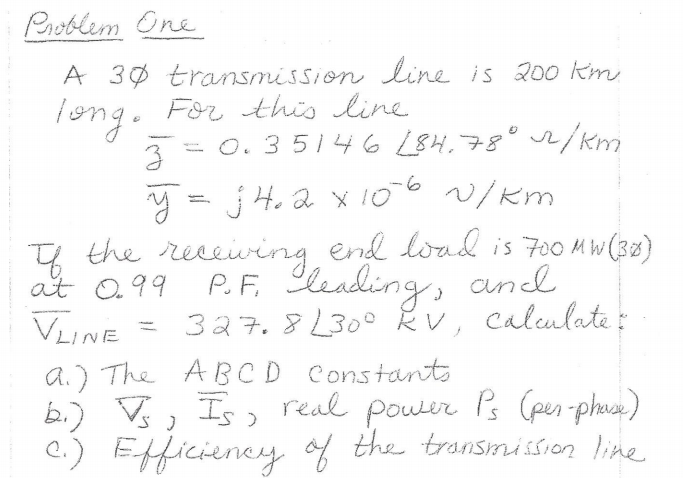 Problem One
A 3Ø transmission line is 200 Km
long. For this line
z̄ = 0.35146 ∠84.78° Ω/Km
ȳ = j4.2 x 10⁻⁶ ℧/Km
If the receiving end load is 700 MW(3Ø)
at 0.99 P.F. leading, and
V̄LINE = 327.8∠30° KV, calculate:
a.) The ABCD constants
b.) V̄s, Īs, real power Ps (per-phase)
c.) Efficiency of the transmission line